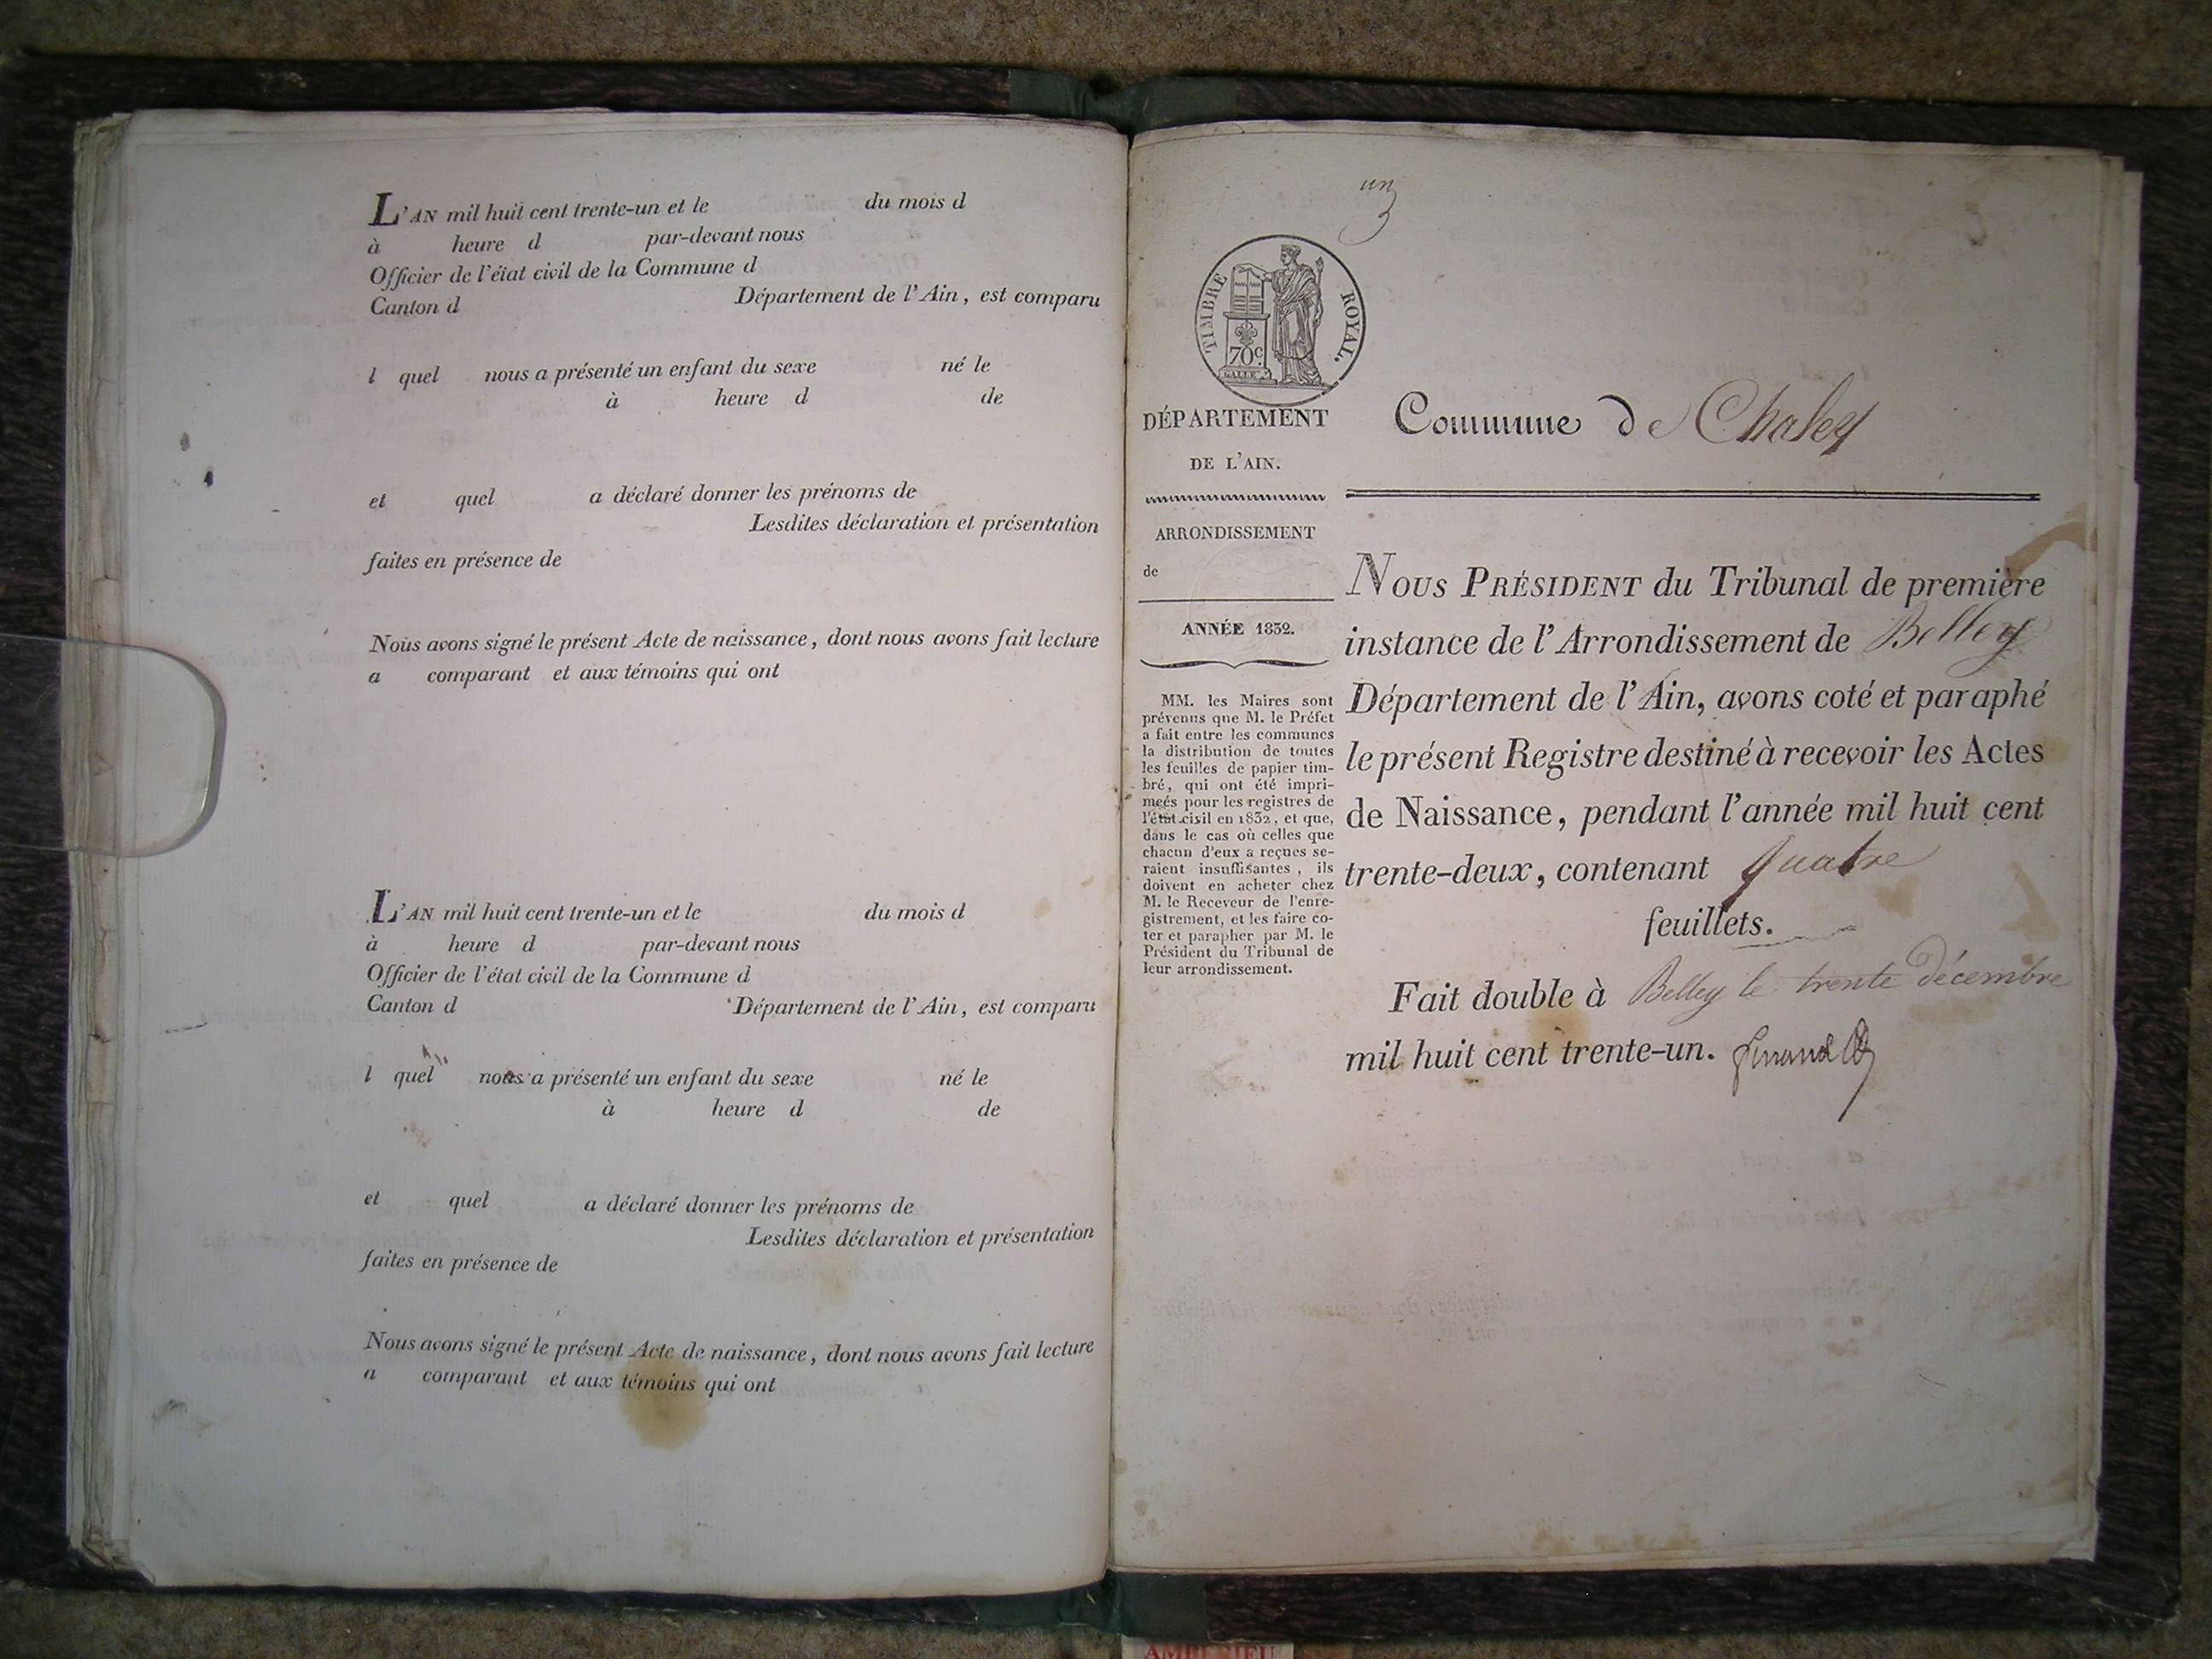 L'AN mil huit cent trente-un et le du mois d
à heure d par-devant nous
Officier de l'état civil de la Commune d
Canton d Département de l'Ain, est comparu
l quel nous a présenté un enfant du sexe né le
à heure d de
et quel a déclaré donner les prénoms de
Lesdites déclaration et présentation
faites en présence de
Nous avons signé le présent Acte de naissance, dont nous avons fait lecture
a comparant et aux témoins qui ont
L'AN mil huit cent trente-un et le du mois d
à heure d par-devant nous
Officier de l'état civil de la Commune d
Canton d Département de l'Ain, est comparu
l quel nous a présenté un enfant du sexe né le
à heure d de
et quel a déclaré donner les prénoms de
Lesdites déclaration et présentation
faites en présence de
Nous avons signé le présent Acte de naissance, dont nous avons fait lecture
a comparant et aux témoins qui ont
un
TIMBRE ROYAL.
70c.
GALLE
DÉPARTEMENT
DE L'AIN.
ARRONDISSEMENT
de
ANNÉE 1832.
MM. les Maires sont
prévenus que M. le Préfet
a fait entre les communes
la distribution de toutes
les feuilles de papier tim-
bré, qui ont été impri-
meés pour les registres de
l'état civil en 1832, et que,
dans le cas où celles que
chacun d'eux a reçues se-
raient insuffisantes, ils
doivent en acheter chez
M. le Receveur de l'enre-
gistrement, et les faire co-
ter et parapher par M. le
Président du Tribunal de
leur arrondissement.
Commune de Chaley
NOUS PRÉSIDENT du Tribunal de première
instance de l'Arrondissement de Belley
Département de l'Ain, avons coté et paraphé
le présent Registre destiné à recevoir les Actes
de Naissance, pendant l'année mil huit cent
trente-deux, contenant quatre
feuillets.
Fait double à Belley le trente décembre
mil huit cent trente-un.
AMBERIEU